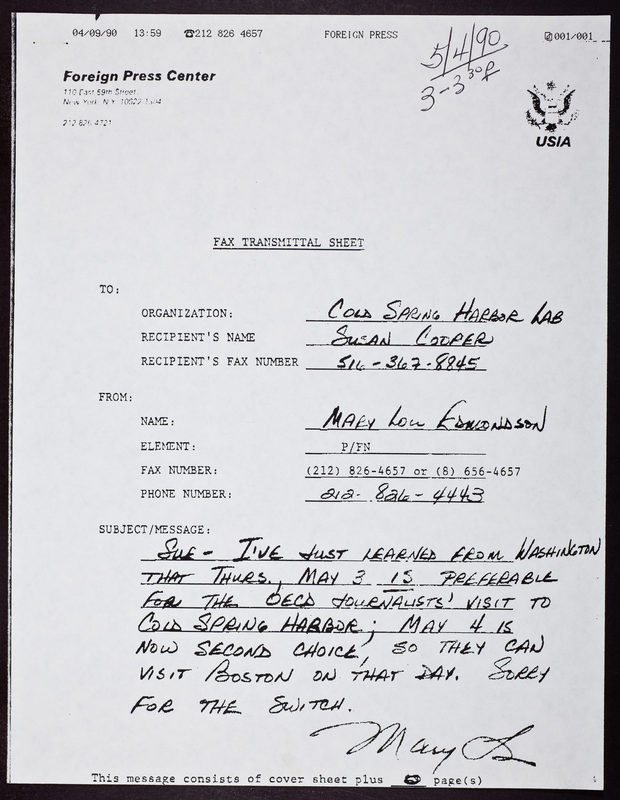 04/09/90 13:59 ☎212 826 4657 FOREIGN PRESS 001/001
5/4/90
3-3³⁰p
Foreign Press Center
110 East 59th Street
New York, N.Y. 10022-1304
212 826-4721
USIA
FAX TRANSMITTAL SHEET
TO:
ORGANIZATION: COLD SPRING HARBOR LAB
RECIPIENT'S NAME SUSAN COOPER
RECIPIENT'S FAX NUMBER 516-367-8845
FROM:
NAME: MARY LOU EDMONDSON
ELEMENT: P/FN
FAX NUMBER: (212) 826-4657 or (8) 656-4657
PHONE NUMBER: 212- 826-4443
SUBJECT/MESSAGE:
SUE - I'VE JUST LEARNED FROM WASHINGTON
THAT THURS., MAY 3 IS PREFERABLE
FOR THE OECD JOURNALISTS' VISIT TO
COLD SPRING HARBOR; MAY 4 IS
NOW SECOND CHOICE, SO THEY CAN
VISIT BOSTON ON THAT DAY. SORRY
FOR THE SWITCH.
Mary L
This message consists of cover sheet plus 0 page(s)